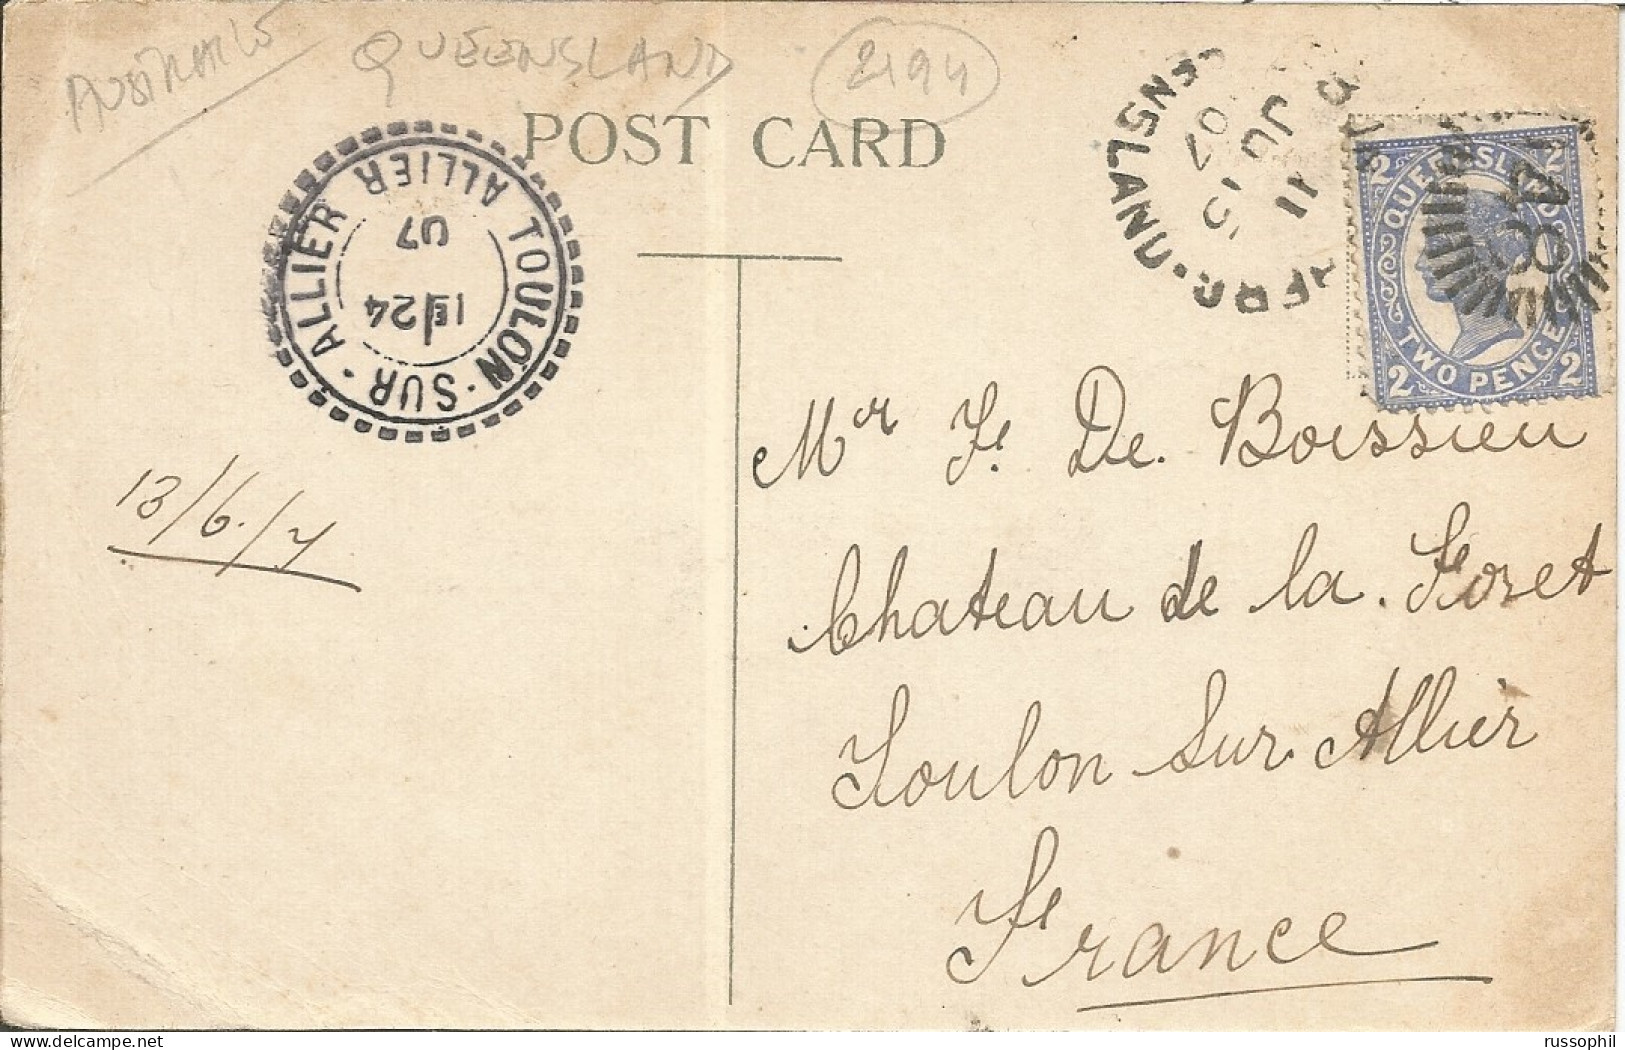 AUSTRALIE
QUEENSLAND
2194
POST CARD
TOULON-SUR-ALLIER ALLIER
1E
24
07
ENSLAND
JU
07
11
148
2 QUEENSLAND 2
2 TWO PENCE 2
13/6/7
Mr F. De. Boissieu
Chateau de la. Foret
Toulon Sur Allier
France
www.russophil
.com